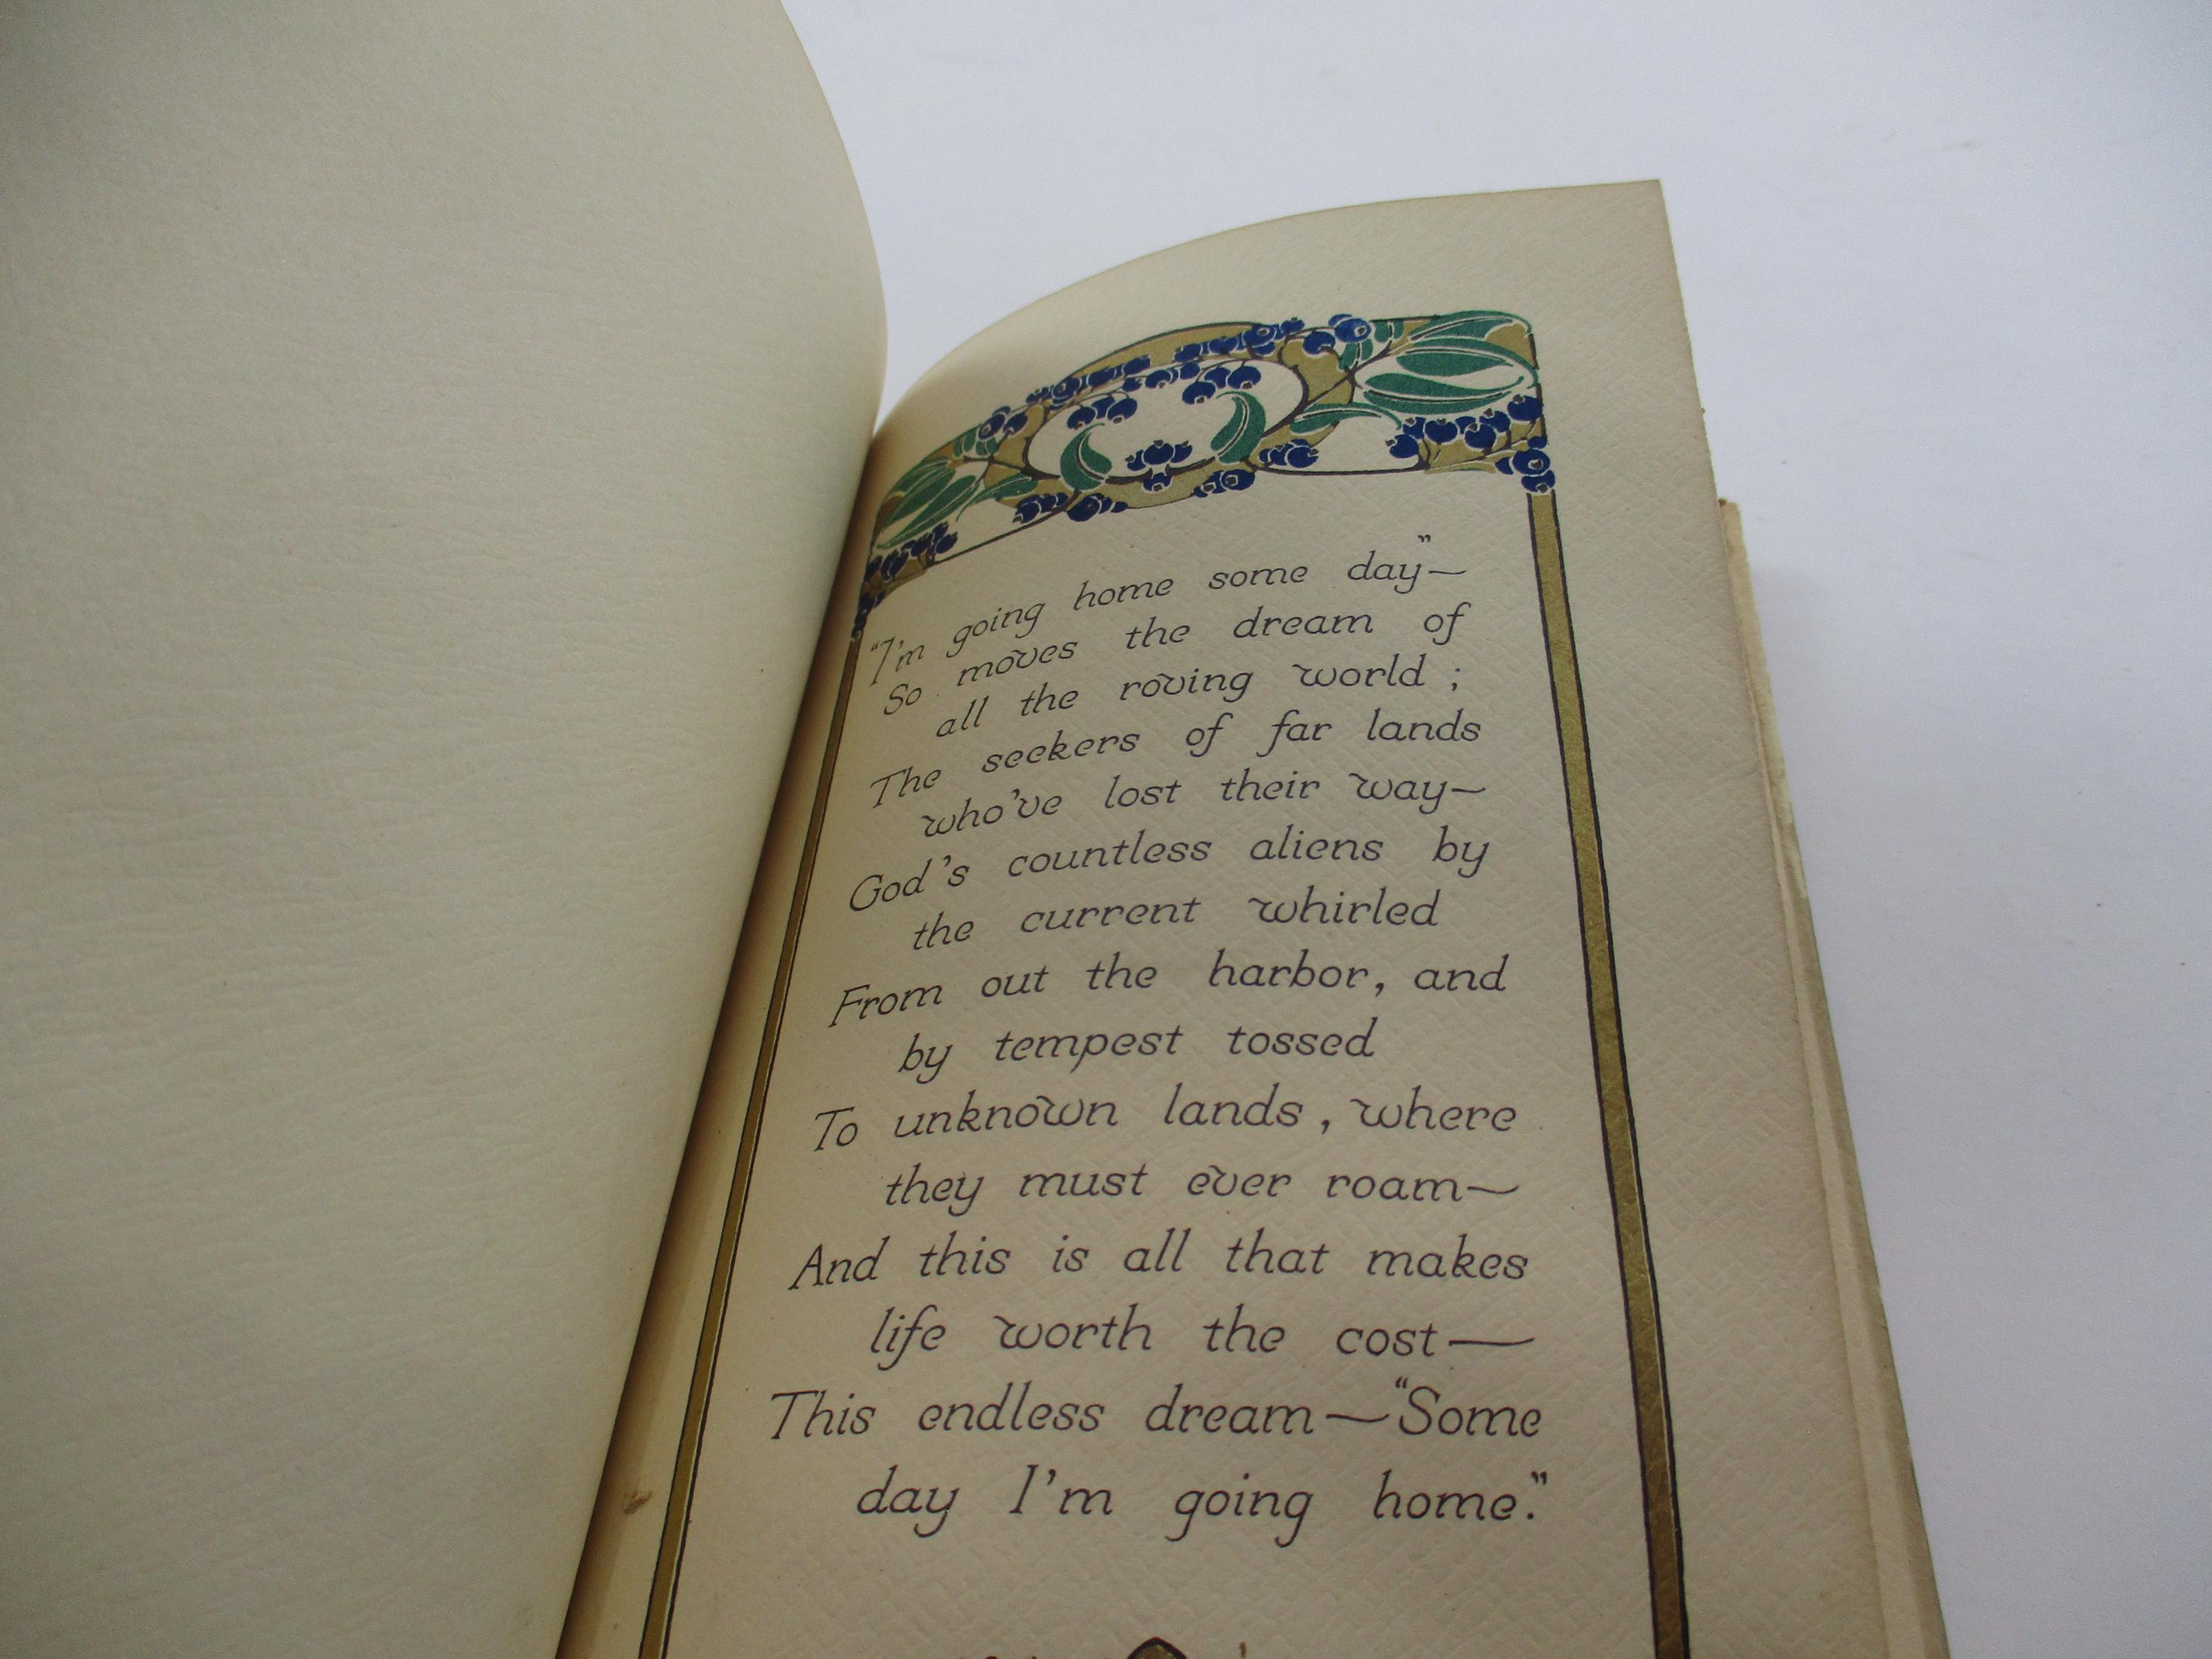 "I'm going home some day"—
So moves the dream of
all the roving world ;
The seekers of far lands
who've lost their way—
God's countless aliens by
the current whirled
From out the harbor, and
by tempest tossed
To unknown lands, where
they must ever roam—
And this is all that makes
life worth the cost—
This endless dream—"Some
day I'm going home."